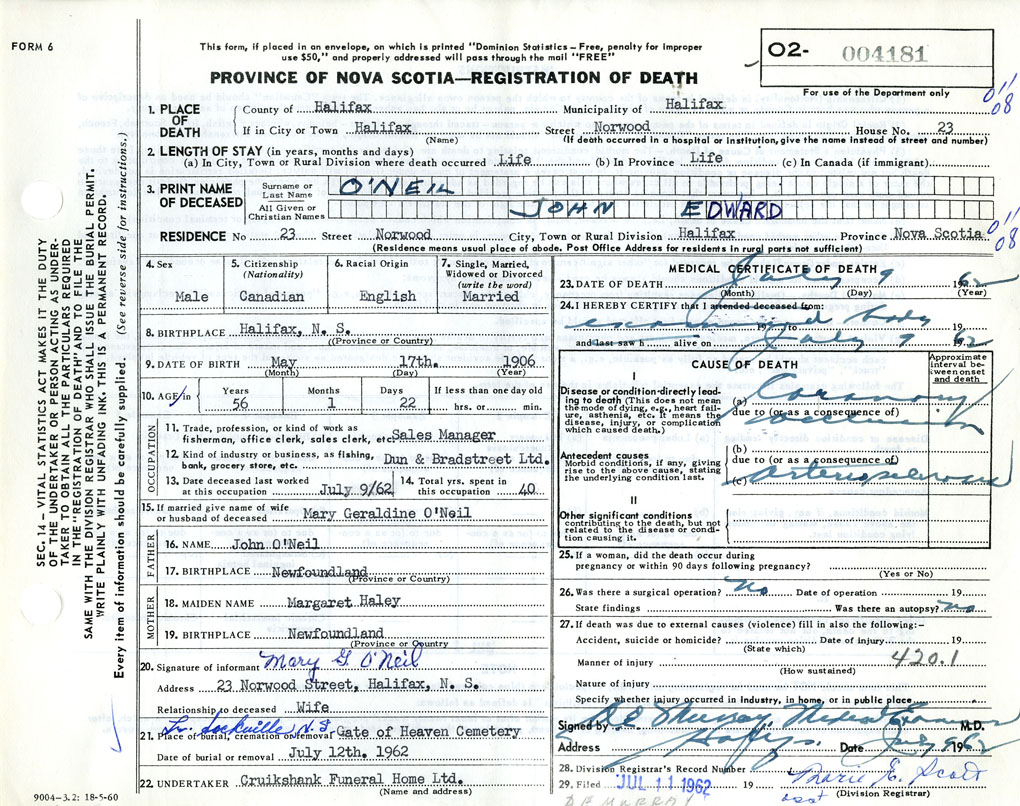 FORM 6
This form, if placed in an envelope, on which is printed "Dominion Statistics – Free, penalty for improper
use $50," and properly addressed will pass through the mail "FREE"
PROVINCE OF NOVA SCOTIA—REGISTRATION OF DEATH
O2- 004181
For use of the Department only
01/08
SEC. 14 – VITAL STATISTICS ACT MAKES IT THE DUTY
OF THE UNDERTAKER OR PERSON ACTING AS UNDER-
TAKER TO OBTAIN ALL THE PARTICULARS REQUIRED
IN THE "REGISTRATION OF DEATH" AND TO FILE THE
SAME WITH THE DIVISION REGISTRAR WHO SHALL ISSUE THE BURIAL PERMIT.
WRITE PLAINLY WITH UNFADING INK. THIS IS A PERMANENT RECORD.
Every item of information should be carefully supplied. (See reverse side for instructions.)
1. PLACE OF DEATH
County of Halifax Municipality of Halifax
If in City or Town Halifax Street Norwood House No. 23
(Name) (If death occurred in a hospital or institution, give the name instead of street and number)
2. LENGTH OF STAY (in years, months and days)
(a) In City, Town or Rural Division where death occurred Life (b) In Province Life (c) In Canada (if immigrant)
3. PRINT NAME OF DECEASED
Surname or Last Name O'NEIL
All Given or Christian Names JOHN EDWARD
RESIDENCE No 23 Street Norwood City, Town or Rural Division Halifax Province Nova Scotia
(Residence means usual place of abode. Post Office Address for residents in rural parts not sufficient)
01/08
4. Sex Male
5. Citizenship (Nationality) Canadian
6. Racial Origin English
7. Single, Married, Widowed or Divorced (write the word) Married
8. BIRTHPLACE Halifax, N. S.
((Province or Country)
9. DATE OF BIRTH May 17th. 1906
(Month) (Day) (Year)
10. AGE in Years 56 Months 1 Days 22 If less than one day old hrs. or min.
OCCUPATION
11. Trade, profession, or kind of work as
fisherman, office clerk, sales clerk, etc. Sales Manager
12. Kind of industry or business, as fishing,
bank, grocery store, etc. Dun & Bradstreet Ltd.
13. Date deceased last worked at this occupation July 9/62
14. Total yrs. spent in this occupation 40
15. If married give name of wife
or husband of deceased Mary Geraldine O'Neil
FATHER
16. NAME John O'Neil
17. BIRTHPLACE Newfoundland
(Province or Country)
MOTHER
18. MAIDEN NAME Margaret Haley
19. BIRTHPLACE Newfoundland
(Province or Country
20. Signature of informant Mary G O'Neil
Address 23 Norwood Street, Halifax, N. S.
Relationship to deceased Wife
Sackville N.S.
21. Place of burial, cremation or removal Gate of Heaven Cemetery
Date of burial or removal July 12th. 1962
22. UNDERTAKER Cruikshank Funeral Home Ltd.
(Name and address)
9004–3.2: 18-5-60
MEDICAL CERTIFICATE OF DEATH
23. DATE OF DEATH July 9 1962
(Month) (Day) (Year)
24. I HEREBY CERTIFY that I attended deceased from:
examined body
19 to 19
and last saw h alive on July 9 1962
CAUSE OF DEATH
Approximate interval between onset and death
I
Disease or condition directly lead-
ing to death (This does not mean
the mode of dying, e.g., heart fail-
ure, asthenia, etc. It means the
disease, injury, or complication
which caused death.)
(a) Coronary
due to (or as a consequence of)
occlusion
Antecedent causes
Morbid conditions, if any, giving
rise to the above cause, stating
the underlying condition last.
(b)
due to (or as a consequence of)
(c) arteriosclerosis
II
Other significant conditions
contributing to the death, but not
related to the disease or condi-
tion causing it.
25. If a woman, did the death occur during
pregnancy or within 90 days following pregnancy?
(Yes or No)
26. Was there a surgical operation? No Date of operation 19
State findings Was there an autopsy? no
27. If death was due to external causes (violence) fill in also the following:–
Accident, suicide or homicide? Date of injury 19
(State which)
Manner of injury 420.1
(How sustained)
Nature of injury
Specify whether injury occurred in industry, in home, or in public place
Signed by Murray Medical Examiner M.D.
Address Hfx. Date July 9 1962
28. Division Registrar's Record Number
29. Filed JUL 11 1962 19 Marie E. Scott
asst (Division Registrar)
DR MURRAY